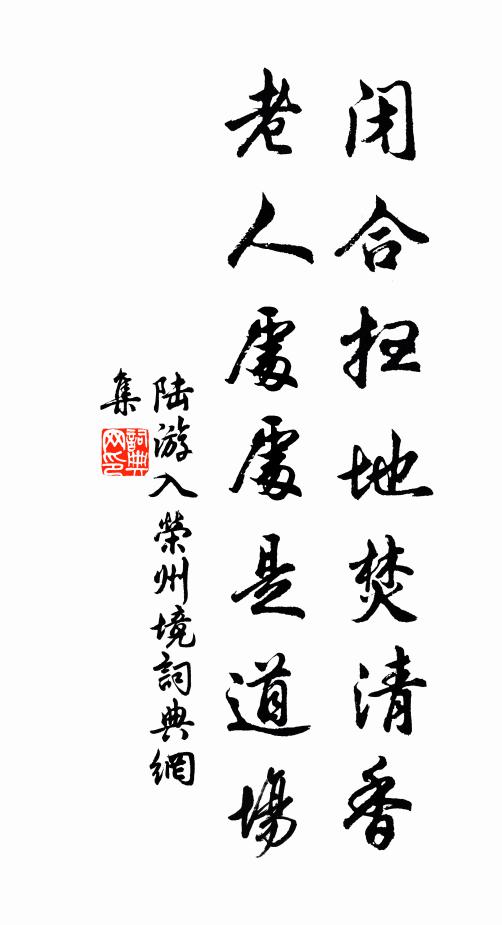 闭合扫地焚清香
老人處處是道場
陆游入榮州境詞典網
集
詞典
网印